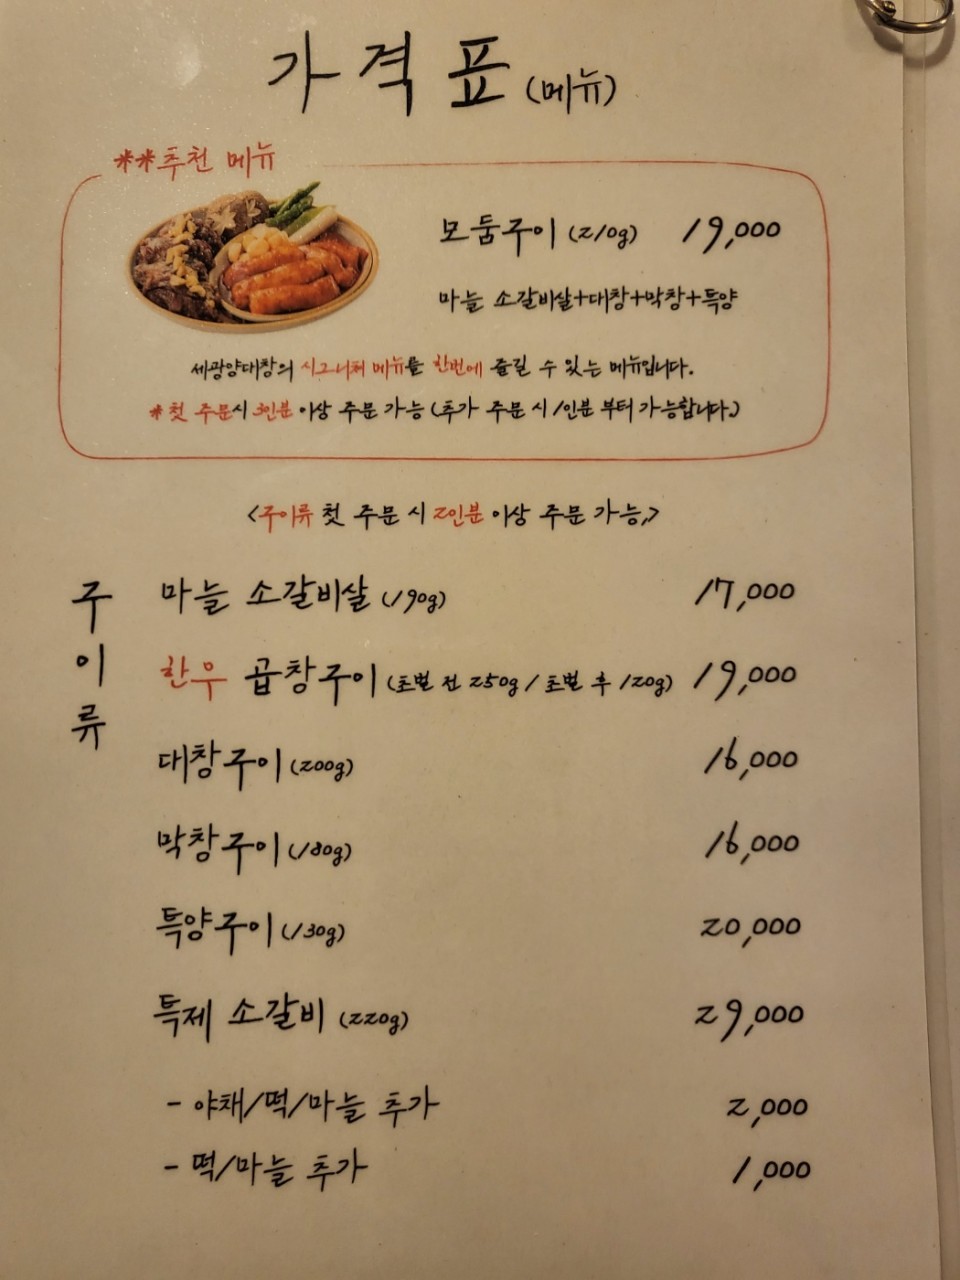 가격표 (메뉴)
**추천 메뉴
모둠구이 (210g) 19,000
마늘 소갈비살+대창+막창+특양
세광양대창의 시그니처 메뉴를 한번에 즐길 수 있는 메뉴입니다.
*첫 주문시 3인분 이상 주문 가능 (추가 주문 시 1인분 부터 가능합니다.)
<구이류 첫 주문 시 2인분 이상 주문 가능,>
구이류
마늘 소갈비살 (190g) 17,000
한우 곱창구이 (초벌 전 250g / 초벌 후 120g) 19,000
대창구이 (200g) 16,000
막창구이 (180g) 16,000
특양구이 (130g) 20,000
특제 소갈비 (220g) 29,000
- 야채/떡/마늘 추가 2,000
- 떡/마늘 추가 1,000